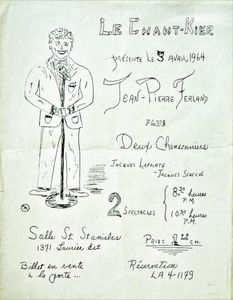 Le Chant-Kier
présente le 3 avril 1964
Jean-Pierre Ferland
plus
Deux Chansonniers
Jacques
- Jacques
2 Spectacles
8:30 heures P.M.
10:30 heures P.M.
Prix: 1 ch.
Salle St Stanislas
1371 Laurier Est
Billet en vente
à la porte...
Réservation
LA 4-1179